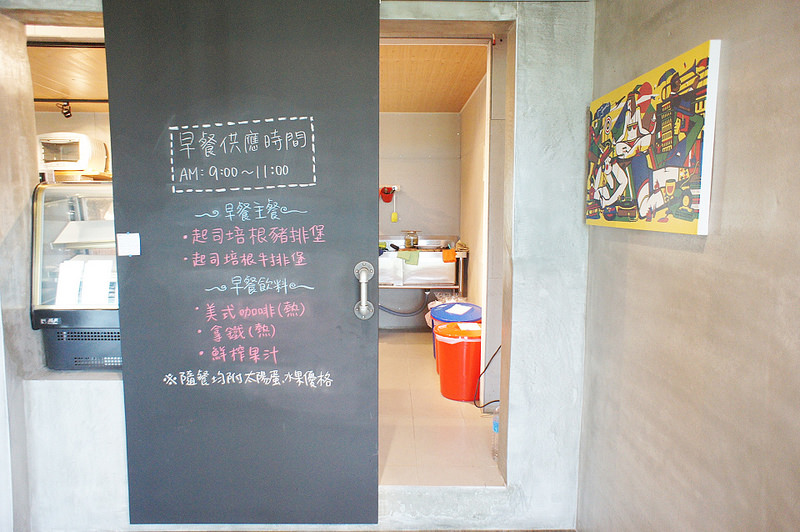 早餐供應時間
AM: 9:00～11:00
早餐主餐
・起司培根豬排堡
・起司培根牛排堡
早餐飲料
・美式咖啡(熱)
・拿鐵(熱)
・鮮榨果汁
※隨餐均附太陽蛋、水果優格